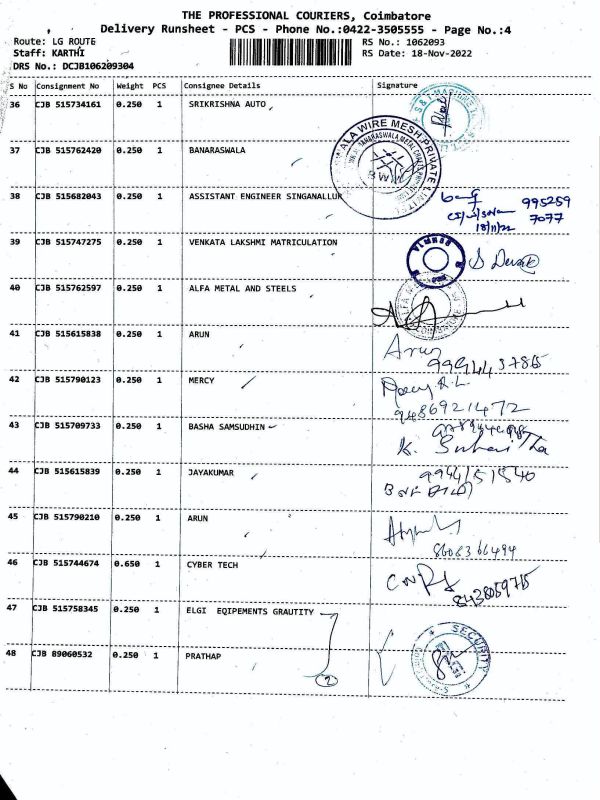 THE PROFESSIONAL COURIERS, Coimbatore
Delivery Runsheet - PCS - Phone No.:0422-3505555 - Page No.:4
Route: LG ROUTE RS No.: 1062093
Staff: KARTHI RS Date: 18-Nov-2022
DRS No.: DCJB106209304
S No Consignment No Weight PCS Consignee Details Signature
36 CJB 515734161 0.250 1 SRIKRISHNA AUTO
37 CJB 515762420 0.250 1 BANARASWALA
38 CJB 515682043 0.250 1 ASSISTANT ENGINEER SINGANALLUR 995259
7077
18/11/22
39 CJB 515747275 0.250 1 VENKATA LAKSHMI MATRICULATION
40 CJB 515762597 0.250 1 ALFA METAL AND STEELS
41 CJB 515615838 0.250 1 ARUN Arun
42 CJB 515790123 0.250 1 MERCY
9486921472
43 CJB 515709733 0.250 1 BASHA SAMSUDHIN
44 CJB 515615839 0.250 1 JAYAKUMAR
45 CJB 515790210 0.250 1 ARUN
46 CJB 515744674 0.650 1 CYBER TECH
47 CJB 515758345 0.250 1 ELGI EQIPEMENTS GRAUTITY
48 CJB 89060532 0.250 1 PRATHAP SECURITY
2